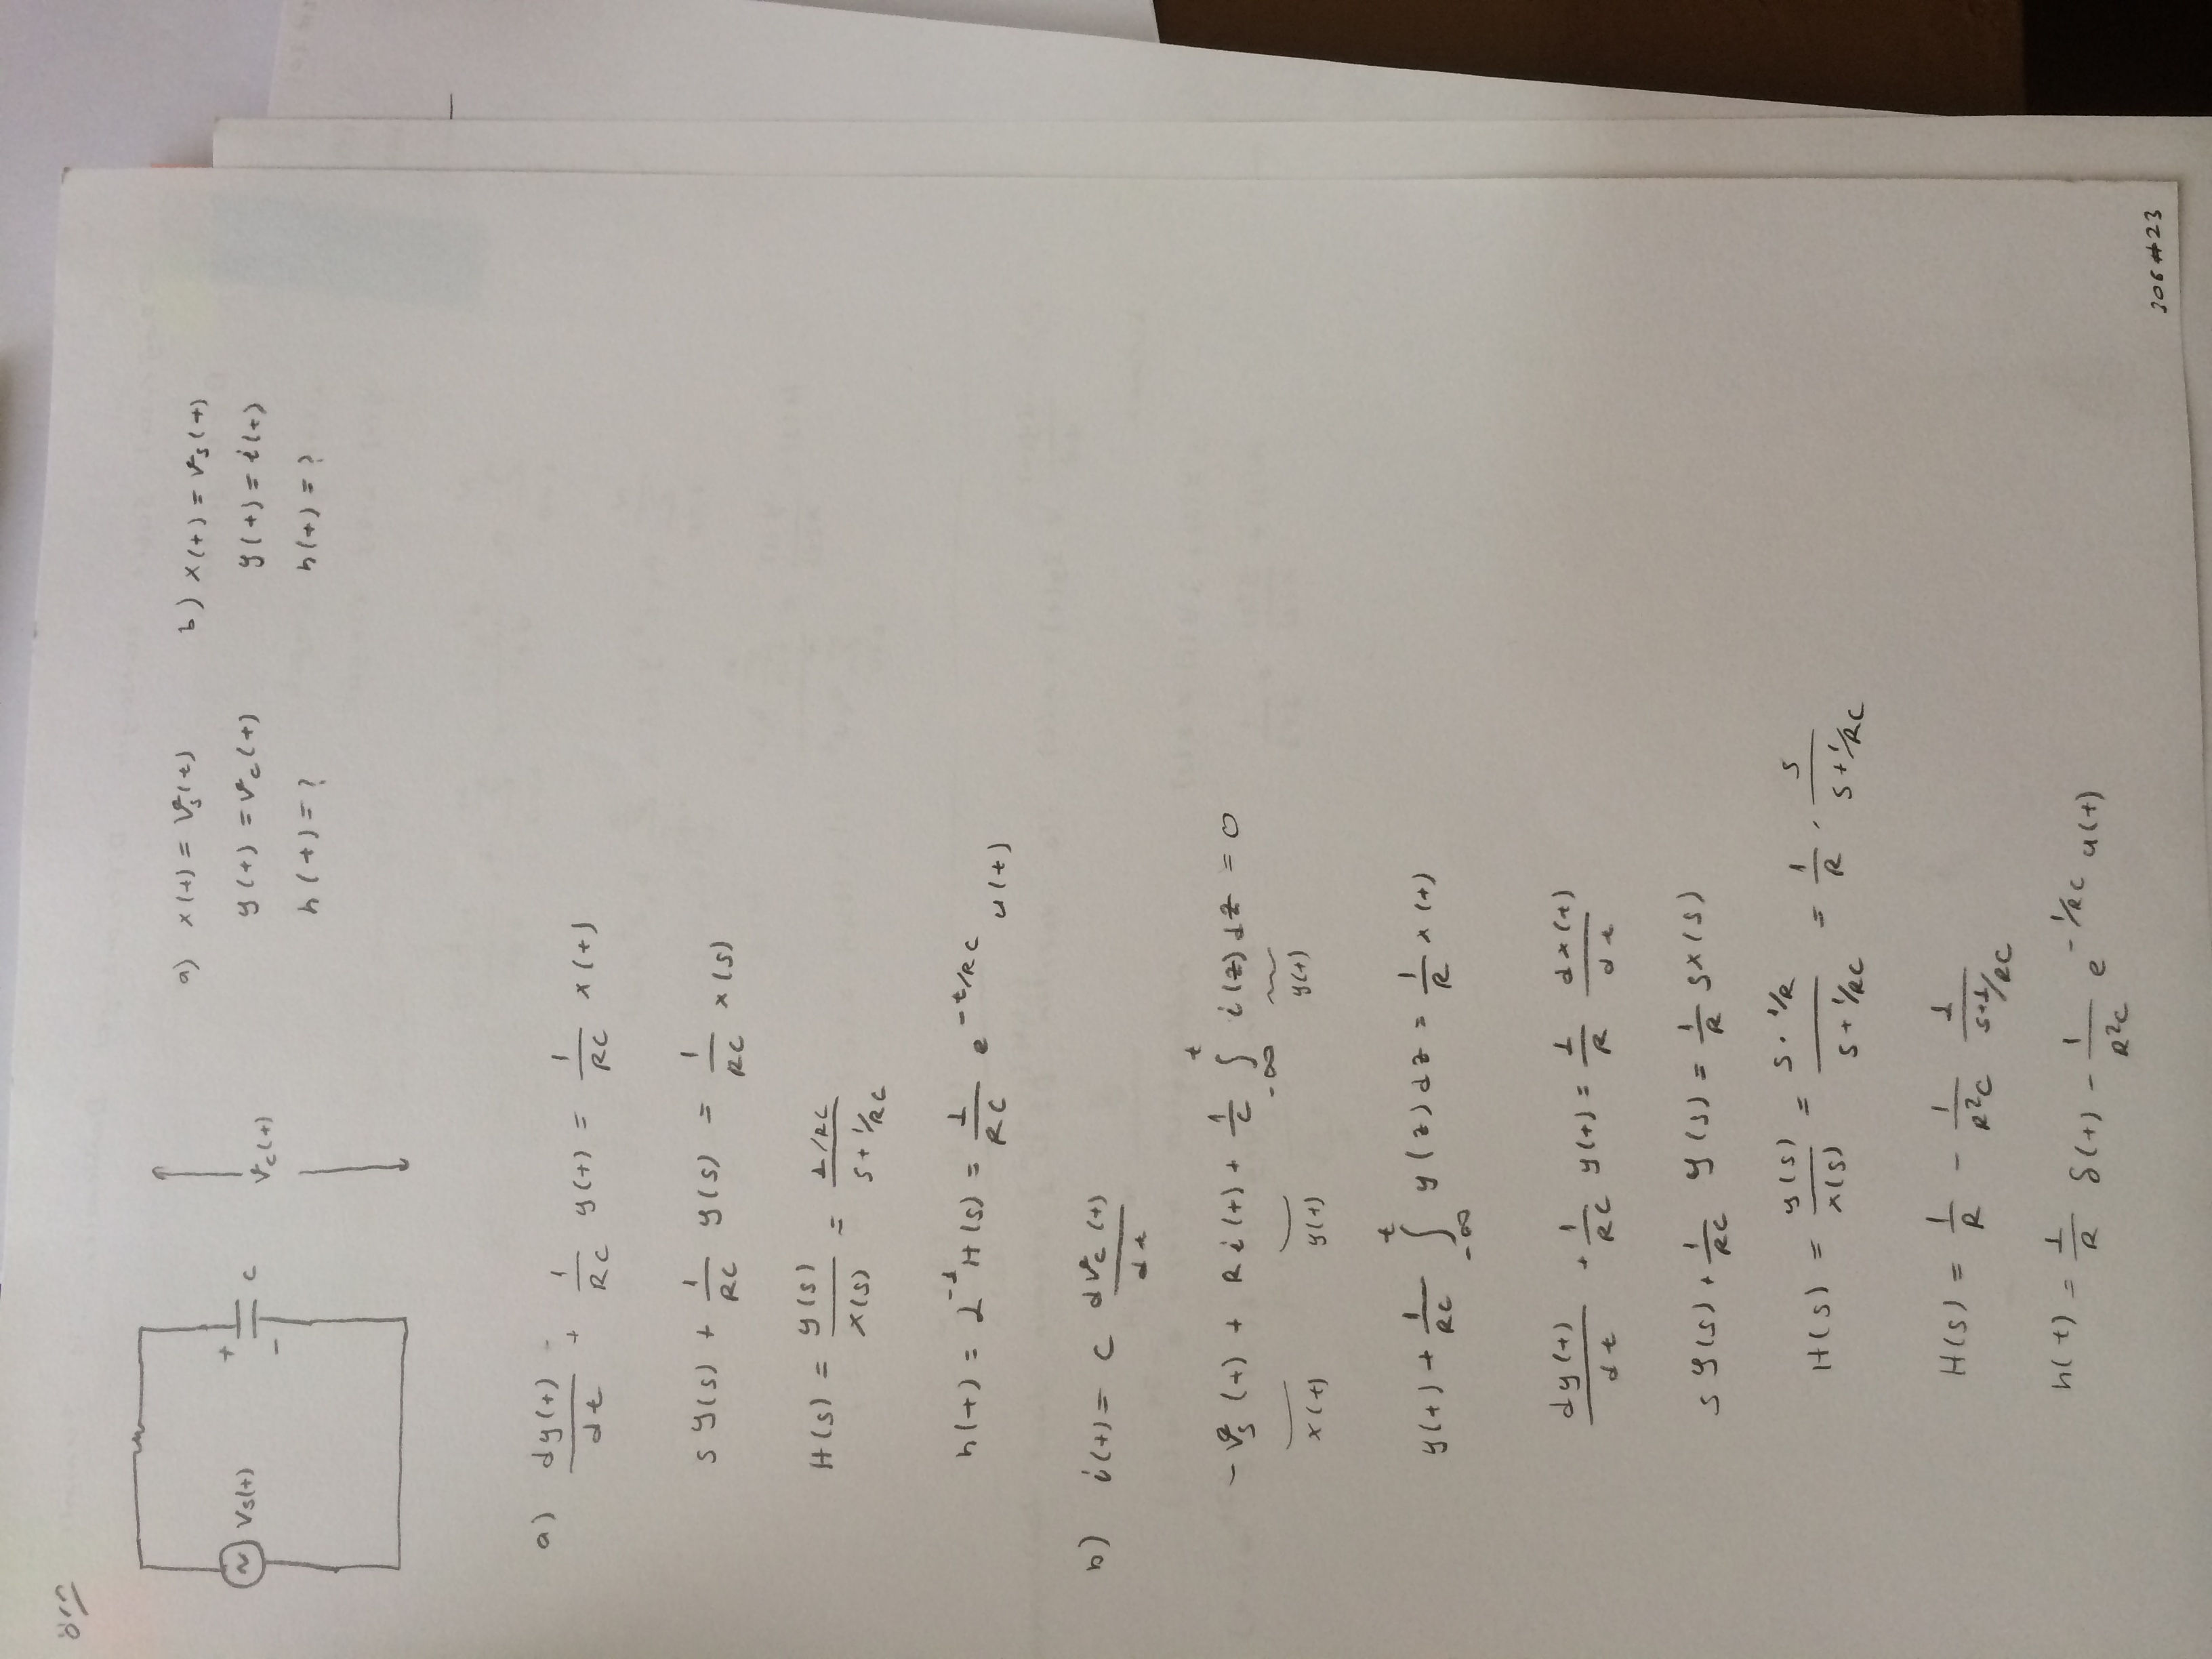 örn
Vs(t)
+
-
C
Vc(t)
a) x(t) = Vs(t)
y(t) = Vc(t)
h(t) = ?
b) x(t) = Vs(t)
y(t) = i(t)
h(t) = ?
a) dy(t)/dt + 1/RC y(t) = 1/RC x(t)
s y(s) + 1/RC y(s) = 1/RC x(s)
H(s) = y(s)/x(s) = (1/RC)/(s + 1/RC)
h(t) = L⁻¹ H(s) = 1/RC e^(-t/RC) u(t)
b) i(t) = C dVc(t)/dt
- Vs(t) + R i(t) + 1/C ∫_{-∞}^{t} i(z) dz = 0
x(t) y(t) y(t)
y(t) + 1/RC ∫_{-∞}^{t} y(z) dz = 1/R x(t)
dy(t)/dt + 1/RC y(t) = 1/R dx(t)/dt
s y(s) + 1/RC y(s) = 1/R s x(s)
H(s) = y(s)/x(s) = (s · 1/R)/(s + 1/RC) = 1/R · s/(s + 1/RC)
H(s) = 1/R - 1/R²C 1/(s+1/RC)
h(t) = 1/R δ(t) - 1/R²C e^(-1/RC) u(t)
306#23